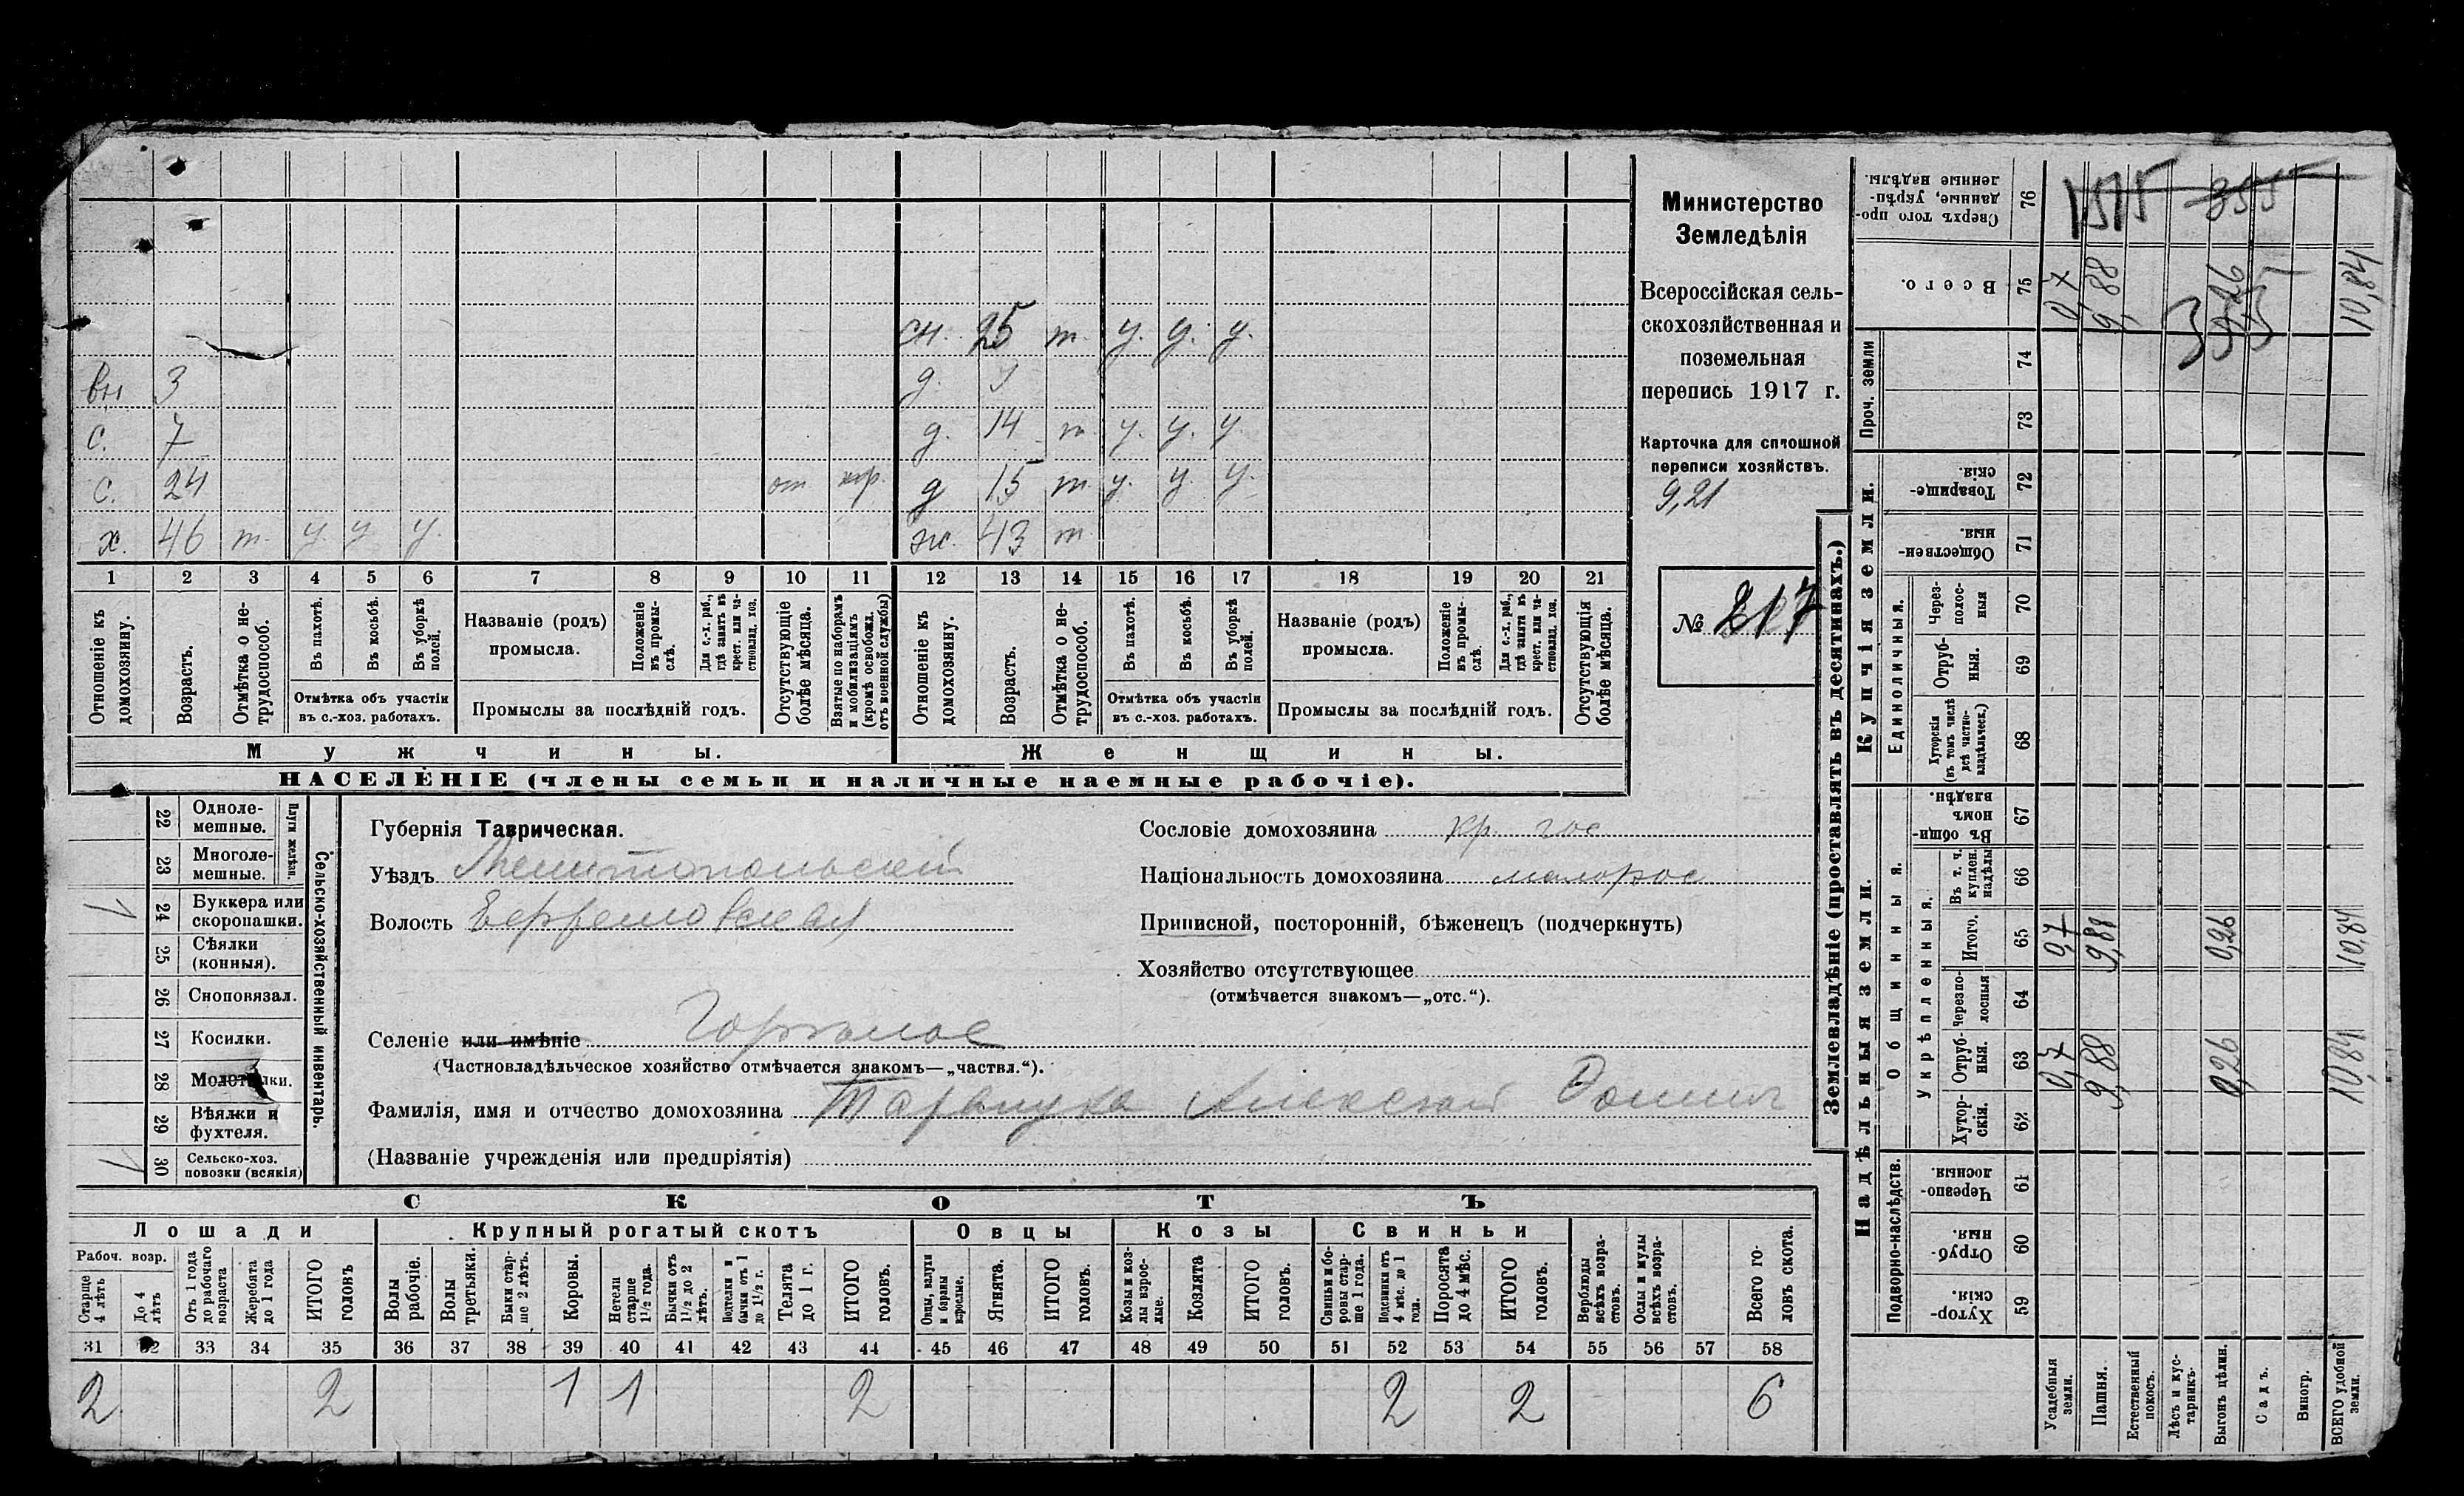 сн. 25 т. у. у. у.
вн 3 д.
с. 7 д. 14 т у. у. у
с. 24 от д 15 т. у. у у.
х. 46 т. у у у. ж. 43 т
1 2 3 4 5 6 7 8 9 10 11 12 13 14 15 16 17 18 19 20 21
Отношеніе къ домохозяину.
Возрастъ.
Отмѣтка о нетрудоспособ.
Въ пахотѣ.
Въ косьбѣ.
Въ уборкѣ полей.
Отмѣтка объ участіи въ с.-хоз. работахъ.
Названіе (родъ) промысла.
Положеніе въ промыслѣ.
Для с.-х. раб., гдѣ занятъ въ крест. или частновлад. хоз.
Промыслы за послѣдній годъ.
Отсутствующіе болѣе мѣсяца.
Взятые по наборамъ и мобилизаціямъ (кромѣ освобожд. отъ военной службы)
Отношеніе къ домохозяину.
Возрастъ.
Отмѣтка о нетрудоспособ.
Въ пахотѣ.
Въ косьбѣ.
Въ уборкѣ полей.
Отмѣтка объ участіи въ с.-хоз. работахъ.
Названіе (родъ) промысла.
Положеніе въ промыслѣ.
Для с.-х. раб., гдѣ занята въ крест. или частновлад. хоз.
Промыслы за послѣдній годъ.
Отсутствующія болѣе мѣсяца.
Мужчины.
Женщины.
НАСЕЛЕНІЕ (члены семьи и наличные наемные рабочіе).
Министерство
Земледѣлія
Всероссійская сель-
скохозяйственная и
поземельная
перепись 1917 г.
Карточка для сплошной
переписи хозяйствъ.
9,21
№ 217
22 Одноле-мешные.
23 Многоле-мешные.
Плуги желѣзн.
24 Буккера или скоропашки.
25 Сѣялки (конныя).
26 Сноповязал.
27 Косилки.
28 Молотилки.
29 Вѣялки и фухтеля.
30 Сельско-хоз. повозки (всякія)
Сельско-хозяйственный инвентарь.
Губернія Таврическая.
Уѣздъ Мелитопольскій
Волость Ефремовская
Селеніе или имѣніе
(Частновладѣльческое хозяйство отмѣчается знакомъ—„частвл.“).
Фамилія, имя и отчество домохозяина Алексей
(Названіе учрежденія или предпріятія)
Сословіе домохозяина кр. гос
Національность домохозяина малорос
Приписной, посторонній, бѣженецъ (подчеркнуть)
Хозяйство отсутствующее
(отмѣчается знакомъ—„отс.“).
СКОТЪ
Лошади Крупный рогатый скотъ Овцы Козы Свиньи
Рабоч. возр.
Старше 4 лѣтъ
До 4 лѣтъ
Отъ 1 года до рабочаго возраста
Жеребята до 1 года
ИТОГО головъ
Волы рабочіе.
Волы третьяки.
Быки старше 2 лѣтъ.
Коровы.
Нетели старше 1½ года.
Бычки отъ 1½ до 2 лѣтъ.
Подтелки и бычки отъ 1 до 1½ г.
Телята до 1 г.
ИТОГО головъ.
Овцы, валухи и бараны взрослые.
Ягнята.
ИТОГО головъ.
Козы и козлы взрослые.
Козлята
ИТОГО головъ.
Свиньи и боровы старше 1 года.
Подсвинки отъ 4 мѣс. до 1 года.
Поросята до 4 мѣс.
ИТОГО головъ.
Верблюды всѣхъ возрастовъ.
Ослы и мулы всѣхъ возрастовъ.
Всего головъ скота.
31 32 33 34 35 36 37 38 39 40 41 42 43 44 45 46 47 48 49 50 51 52 53 54 55 56 57 58
2 2 1 1 2 2 2 6
Землевладѣніе (проставлять въ десятинахъ.)
Надѣльныя земли.
Купчія земли.
Проч. земли
Подворно-наслѣдств.
Общинныя.
Укрѣпленныя.
Единоличныя.
Сверхъ того проданные, укрѣпленные надѣлы. 76
Всего. 75 9,88 10,84
74
73
Товарищескія. 72
Общественныя. 71
Черезполосныя 70
Отрубныя. 69
Хуторскія (въ томъ числѣ всѣ частновладѣльческ.) 68
Въ общинномъ владѣн. 67
Въ т. ч. куплен. надѣлы 66
Итого. 65 0,7 9,88 0,26 10,84
Черезполосныя 64
Отрубныя. 63 0,7 9,88 0,26 10,84
Хуторскія. 62
Черезполосныя. 61
Отрубныя. 60
Хуторскія. 59
Усадебныя земли.
Пашня.
Естественный покосъ.
Лѣсъ и кустарникъ.
Выгонъ цѣлин.
Садъ.
Виногр.
ВСЕГО удобной земли.